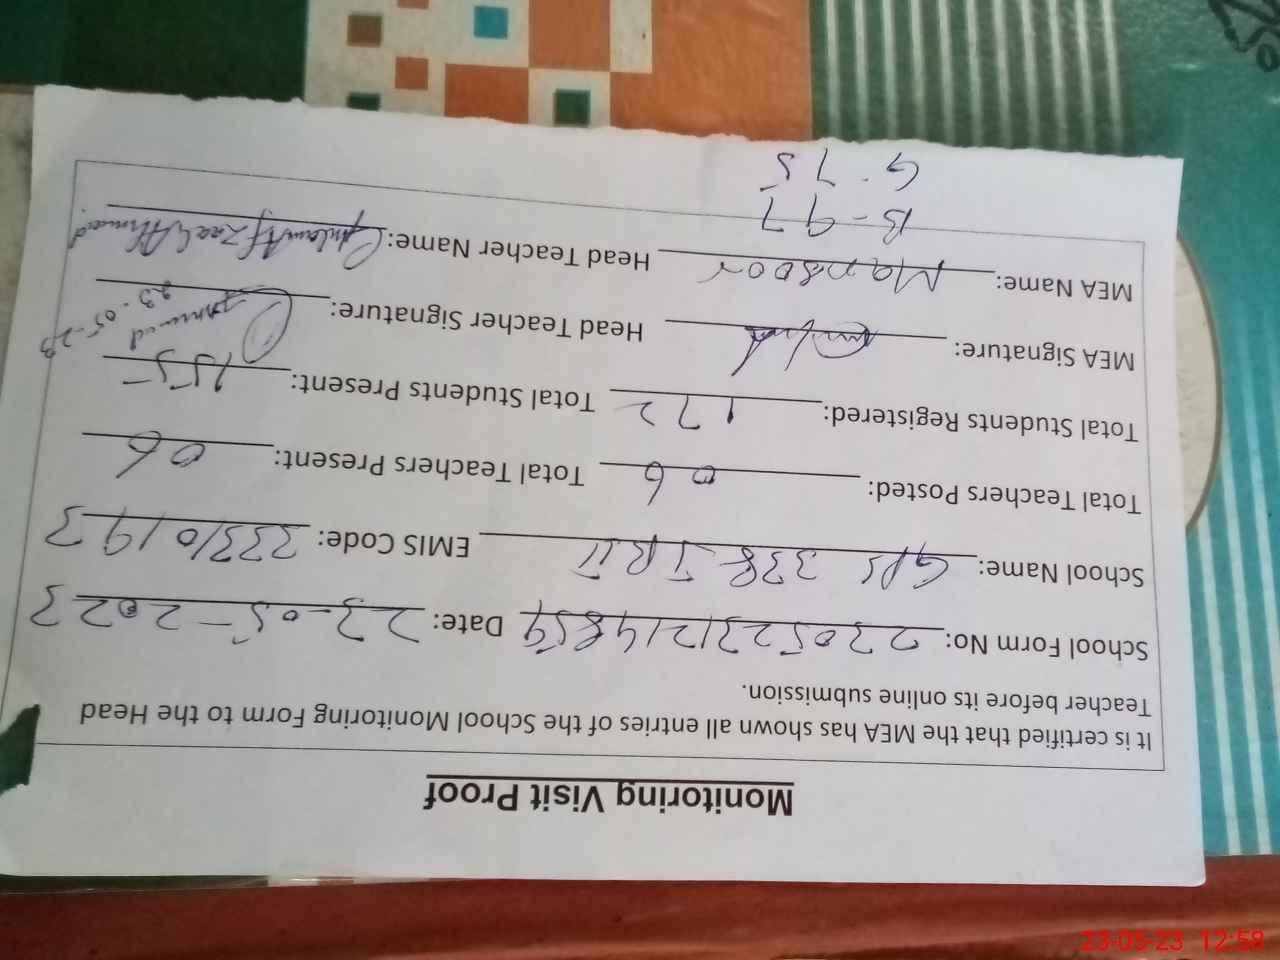 Monitoring Visit Proof
It is certified that the MEA has shown all entries of the School Monitoring Form to the Head
Teacher before its online submission.
School Form No: 2305231214859 Date: 23-05-2023
School Name: GPS 338 JB II EMIS Code: 33310193
Total Teachers Posted: 06 Total Teachers Present: 06
Total Students Registered: 172 Total Students Present: 155
MEA Signature: Head Teacher Signature: 23-05-23
MEA Name: Mansoor Head Teacher Name: Ghulam Afzaal Ahmad
B-97
G-75
23-05-23 12:58